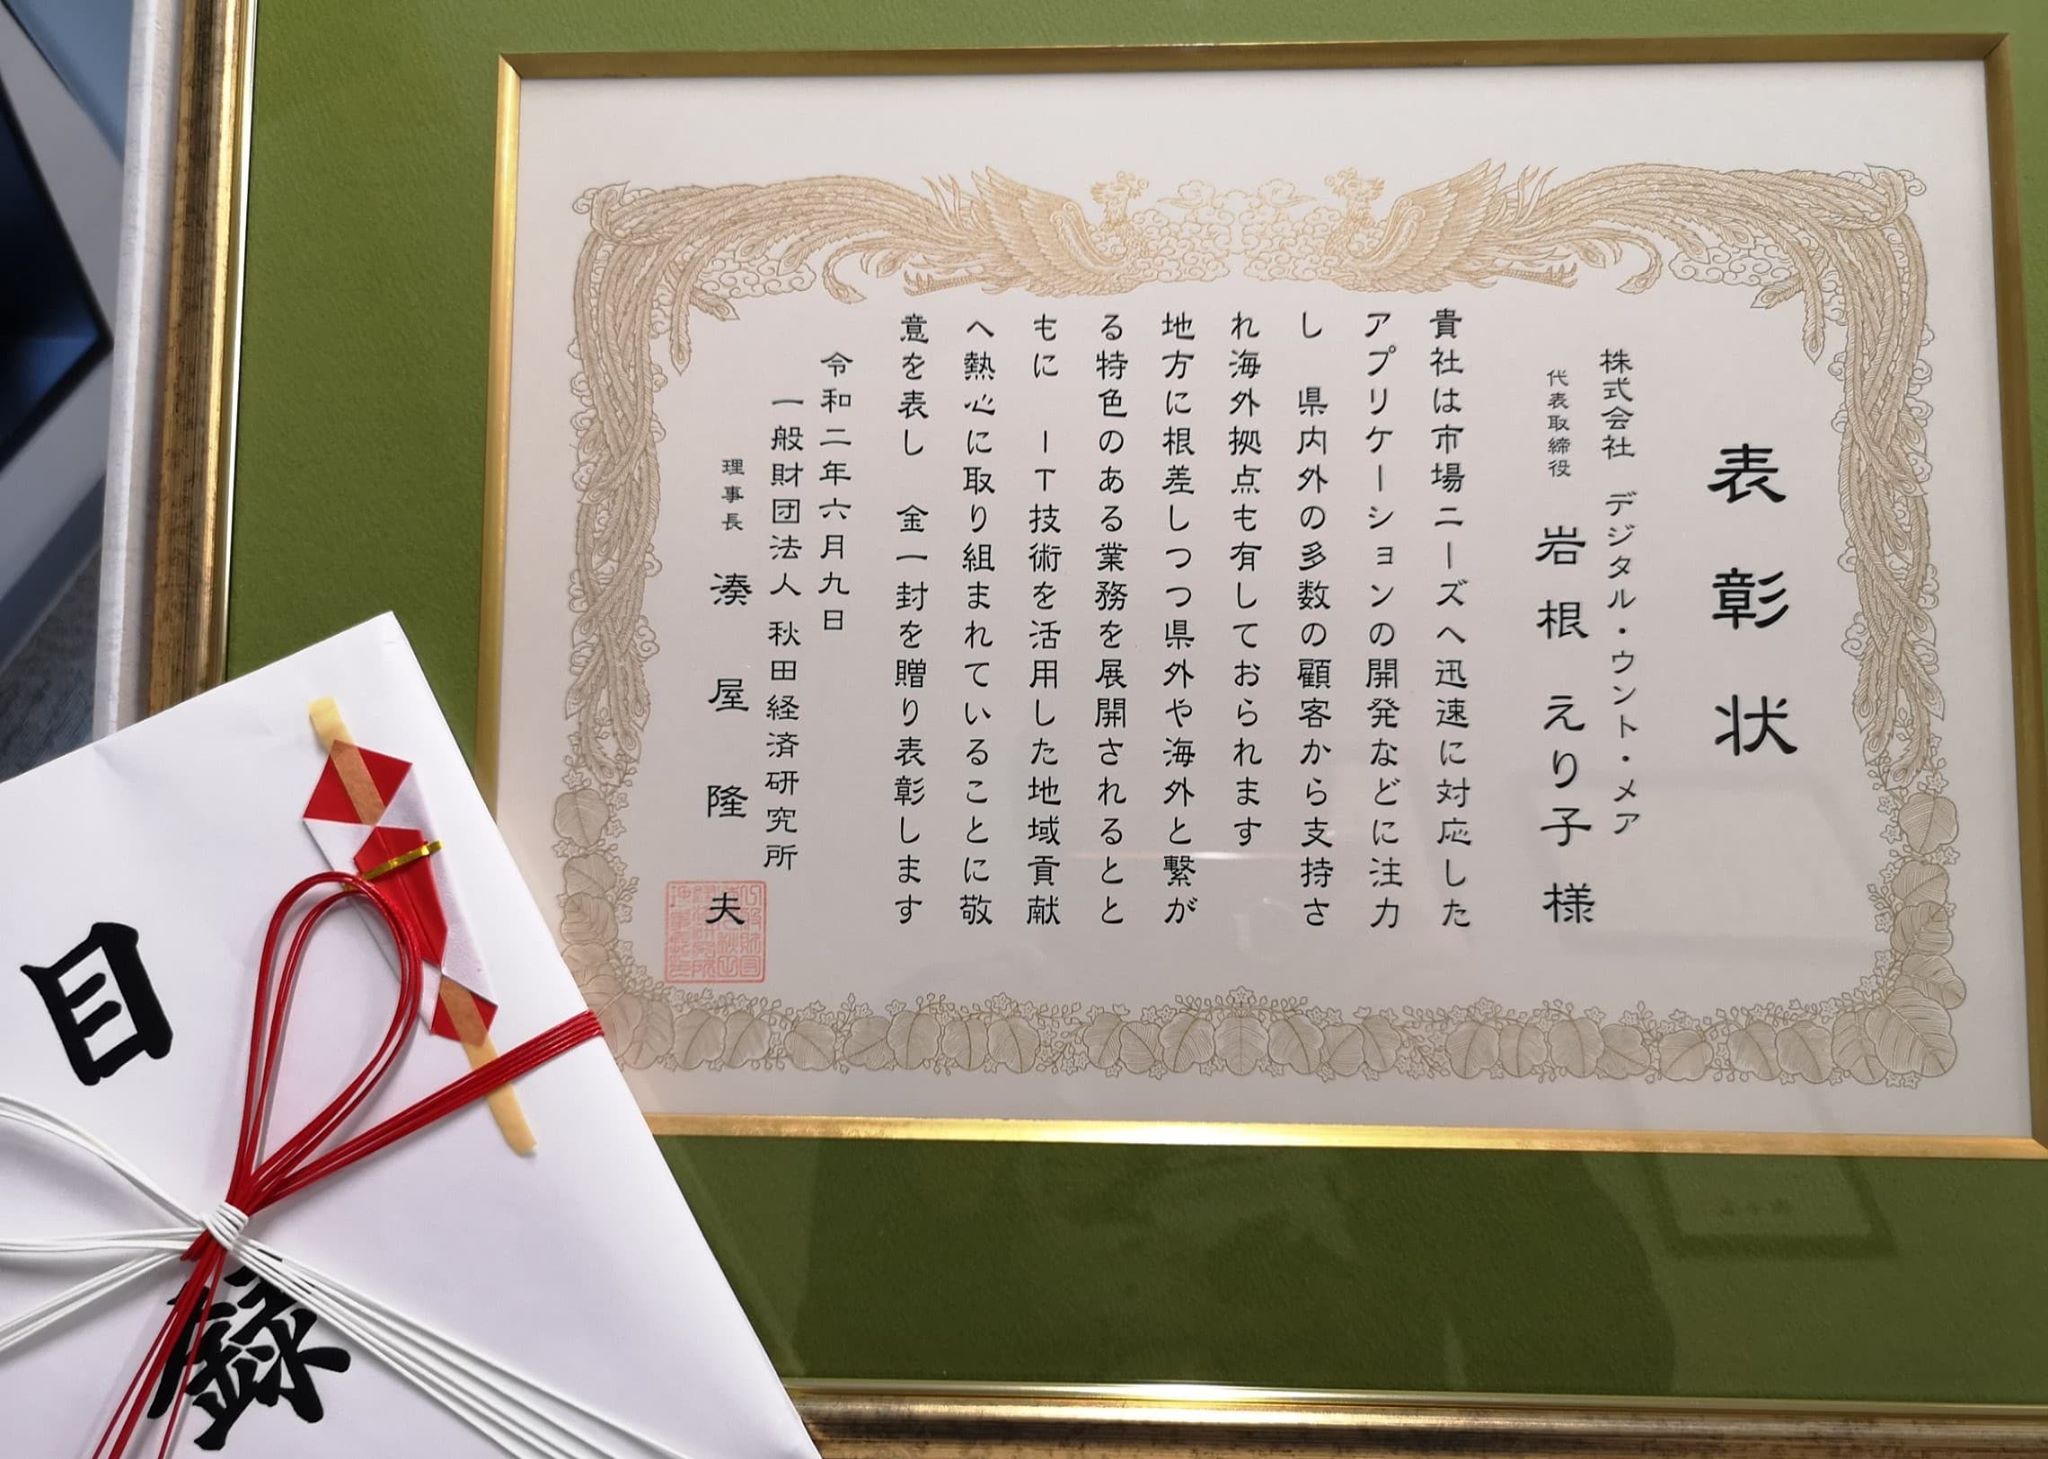 表彰状
株式会社 デジタル・ウント・メア
代表取締役 岩根 えり子 様
貴社は市場ニーズへ迅速に対応した
アプリケーションの開発などに注力
し 県内外の多数の顧客から支持さ
れ海外拠点も有しておられます
地方に根差しつつ県外や海外と繋が
る特色のある業務を展開されるとと
もに IT技術を活用した地域貢献
へ熱心に取り組まれていることに敬
意を表し 金一封を贈り表彰します
令和二年六月九日
一般財団法人 秋田経済研究所
理事長 湊屋隆夫
目録